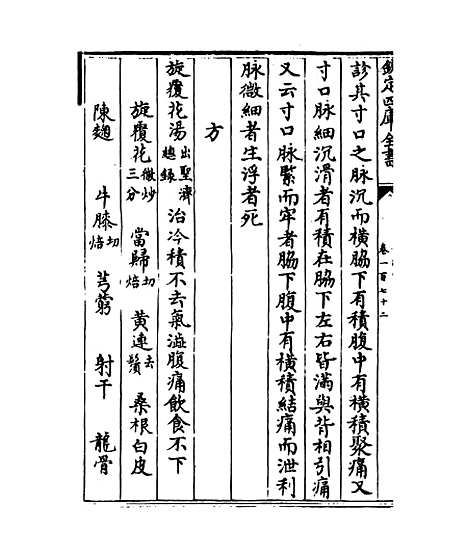 欽定四庫全書
卷一百七十二
診其寸口之脉沉而橫脇下有積腹中有橫積聚痛又
寸口脉細沉滑者有積在脇下左右皆滿與背相引痛
又云寸口脉緊而牢者脇下腹中有橫積結痛而泄利
脉微細者生浮者死
方
旋覆花湯出聖濟總錄治冷積不去氣澁腹痛飲食不下
旋覆花微炒三分 當歸切焙 黄連去鬚 桑根白皮
陳麯 牛膝切焙 芎藭 射干 龍骨